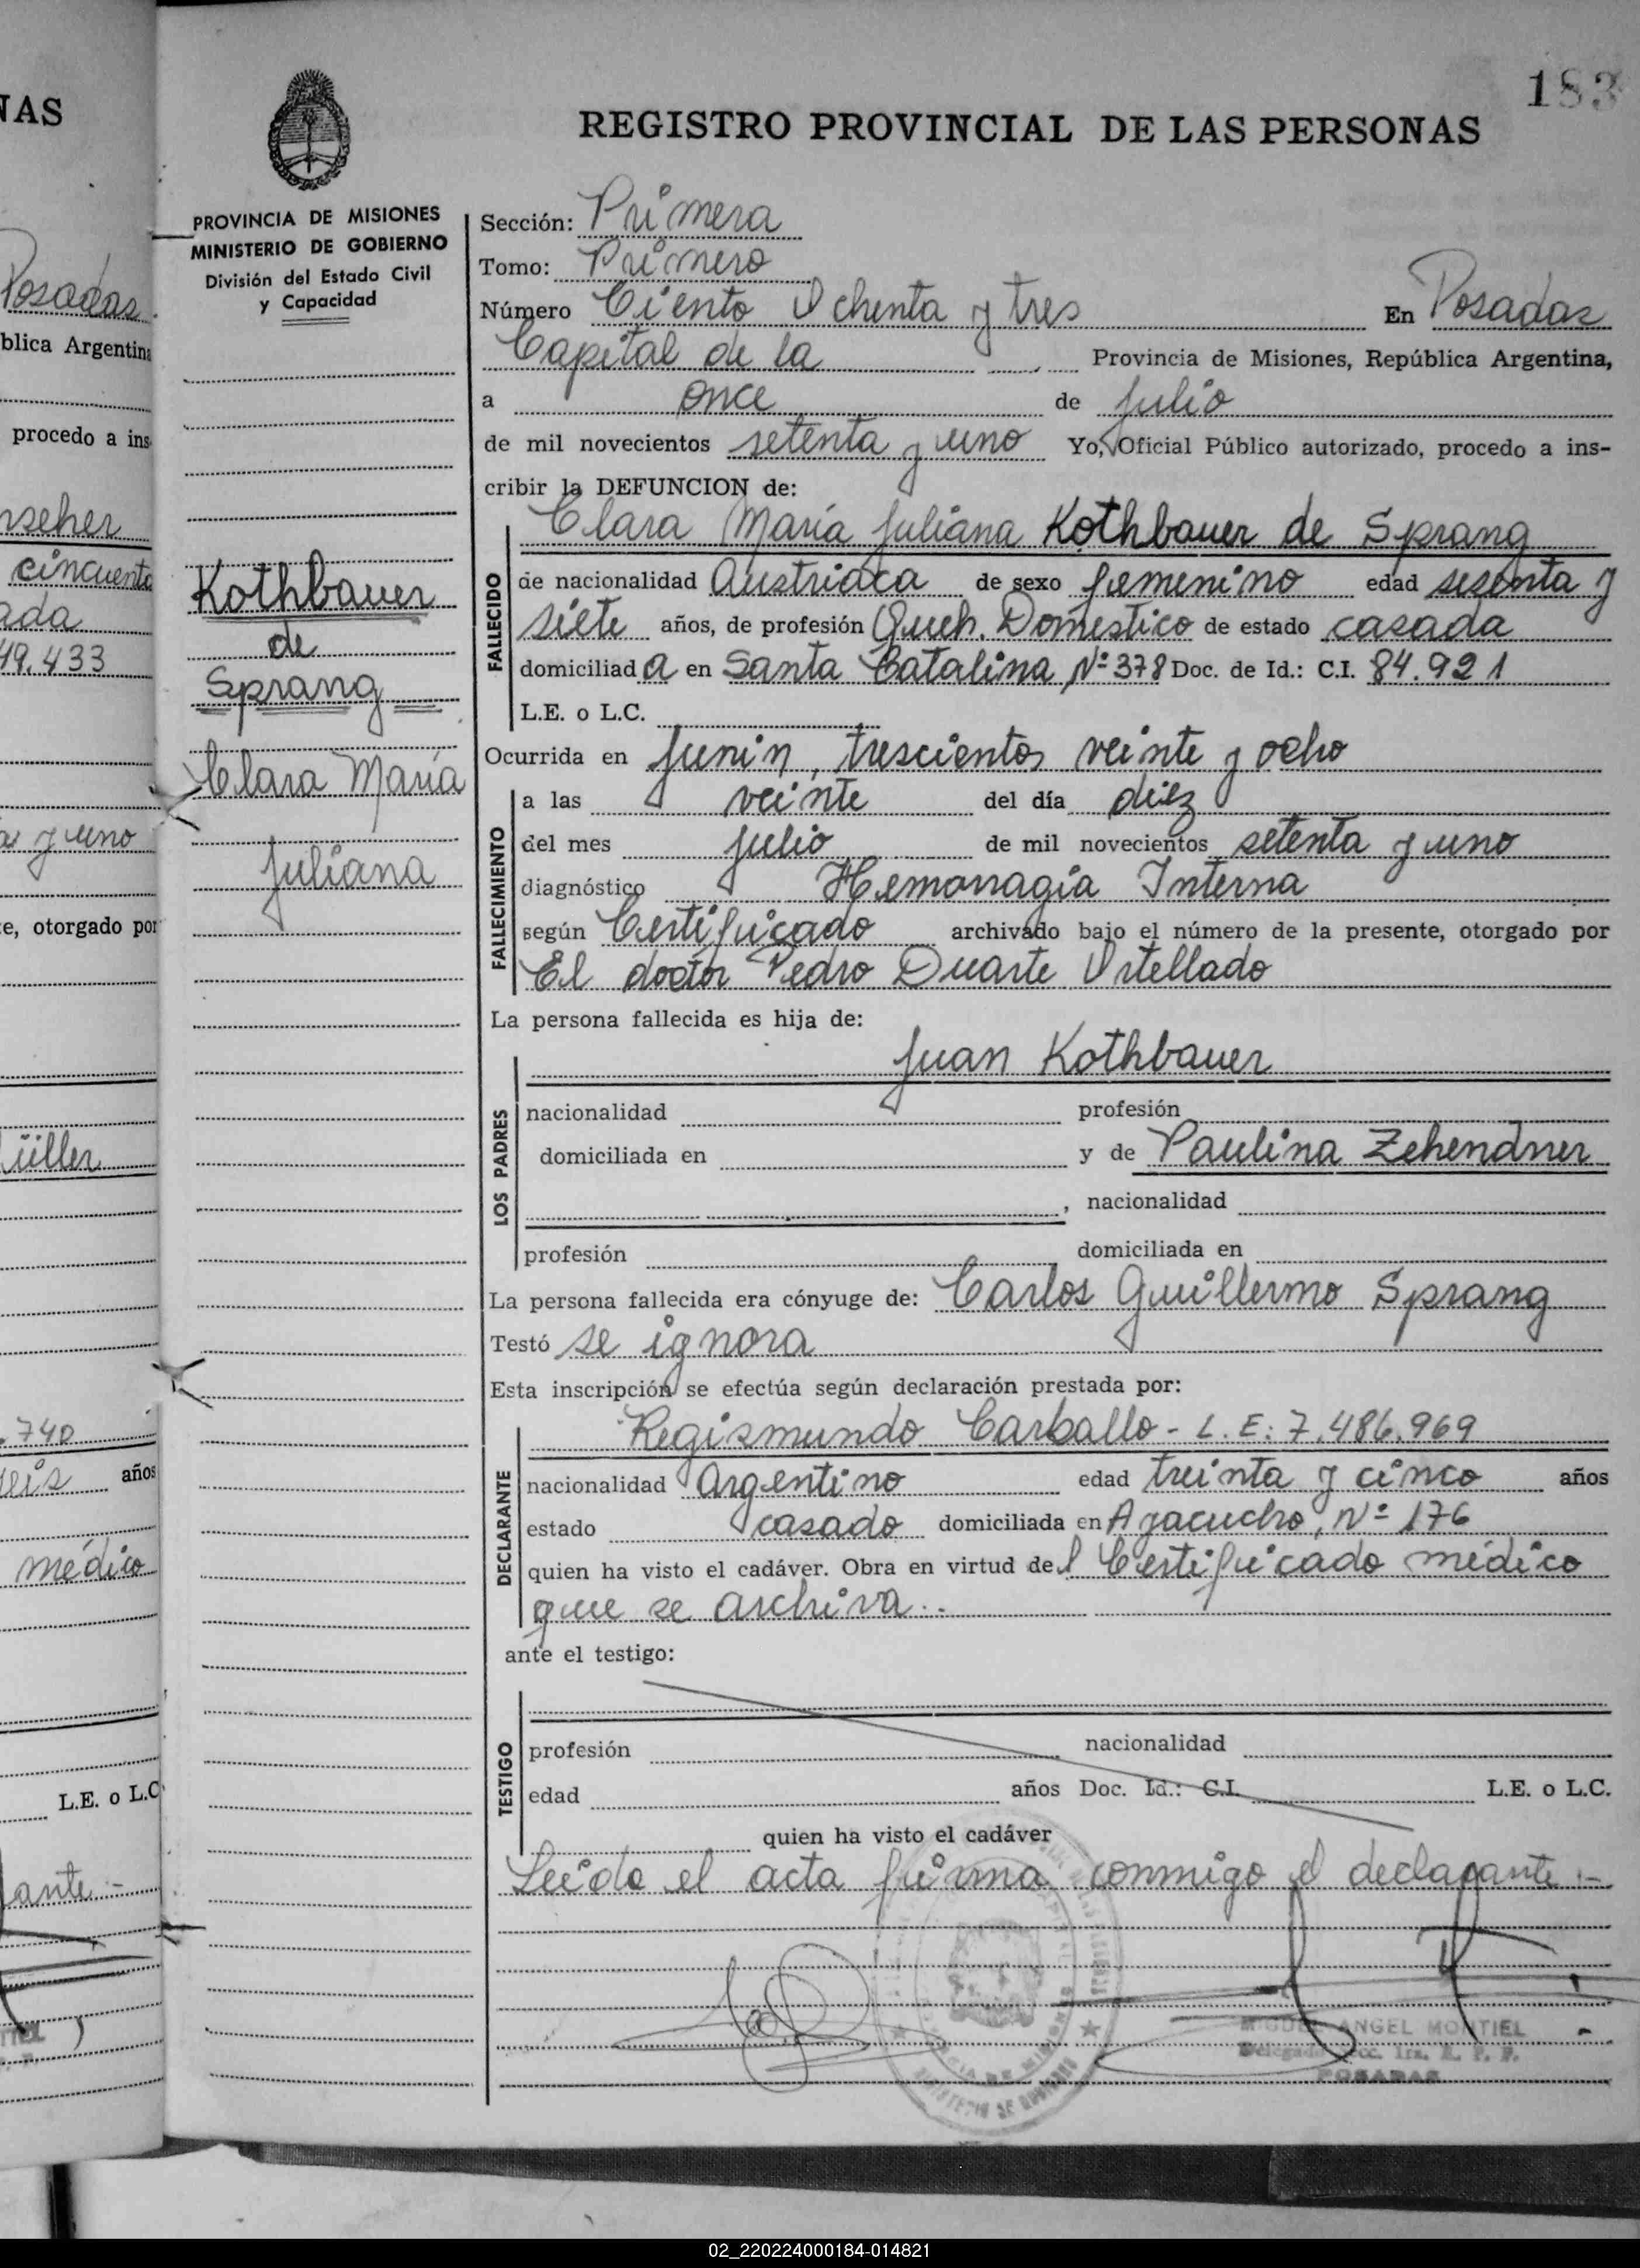 NAS
Posadas.
blica Argentina
procedo a ins
nseher
cincuenta
ada
49.433
a y uno
e, otorgado por
üller
.740
seis años
médico
L.E. o L.C
ante -
183
REGISTRO PROVINCIAL DE LAS PERSONAS
PROVINCIA DE MISIONES
MINISTERIO DE GOBIERNO
División del Estado Civil
y Capacidad
Kothbauer
de
Sprang
Clara María
Juliana
Sección: Primera
Tomo: Primero
Número Ciento Ochenta y tres En Posadas
Capital de la Provincia de Misiones, República Argentina,
a once de julio
de mil novecientos setenta y uno Yo, Oficial Público autorizado, procedo a ins-
cribir la DEFUNCION de:
FALLECIDO
Clara María Juliana Kothbauer de Sprang
de nacionalidad Austriaca de sexo femenino edad sesenta y
siete años, de profesión Queh. Domestico de estado casada
domiciliada en Santa Catalina Nº 378 Doc. de Id.: C.I. 84.921
L.E. o L.C.
Ocurrida en Junin, trescientos veinte y ocho
FALLECIMIENTO
a las veinte del día diez
del mes julio de mil novecientos setenta y uno
diagnóstico Hemorragia Interna
según Certificado archivado bajo el número de la presente, otorgado por
El doctor Pedro Duarte Ortellado
La persona fallecida es hija de:
LOS PADRES
Juan Kothbauer
nacionalidad profesión
domiciliada en y de Paulina Zehendner
, nacionalidad
profesión domiciliada en
La persona fallecida era cónyuge de: Carlos Guillermo Sprang
Testó se ignora
Esta inscripción se efectúa según declaración prestada por:
DECLARANTE
Regismundo Carballo - L.E: 7.486.969
nacionalidad Argentino edad treinta y cinco años
estado casado domiciliada en Ayacucho, Nº 176
quien ha visto el cadáver. Obra en virtud del Certificado médico
que se archiva..
ante el testigo:
TESTIGO
profesión nacionalidad
edad años Doc. Id.: C.I. L.E. o L.C.
quien ha visto el cadáver
Leido el acta firma conmigo el declarante.-
MIGUEL ANGEL MONTIEL
Delegado Secc. 1ra. R. P. P.
POSADAS
02_220224000184-014821